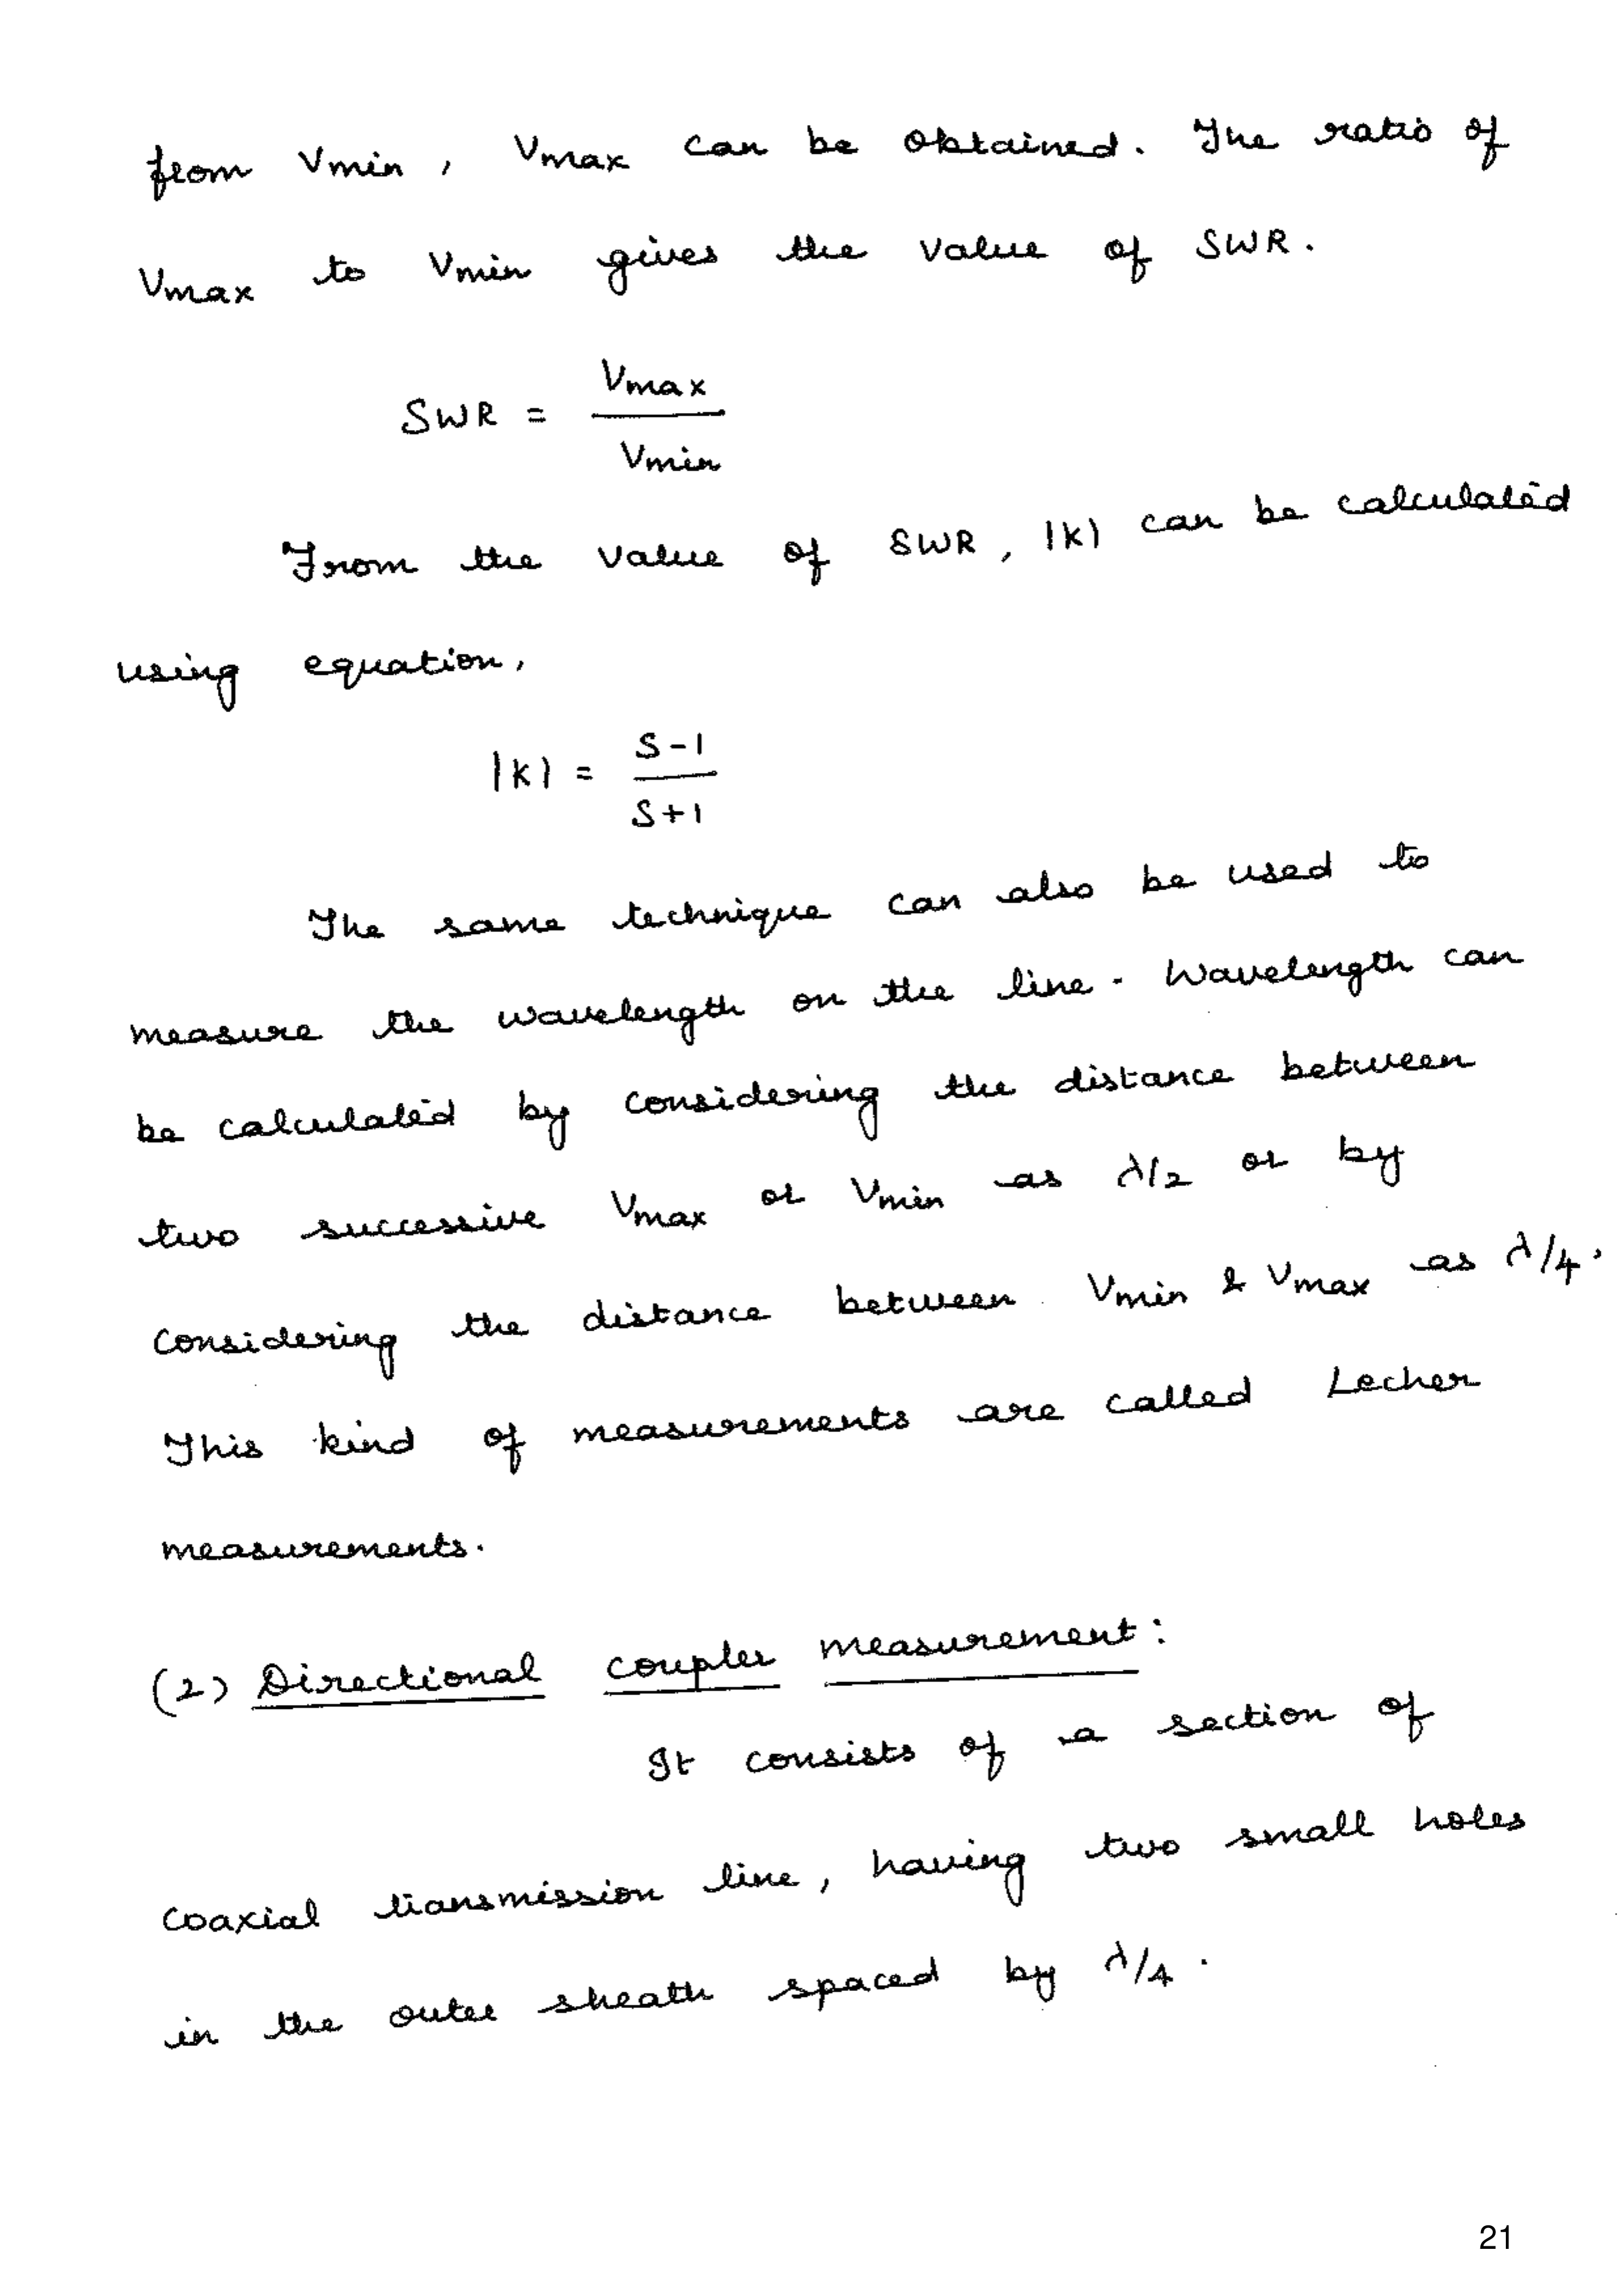 from Vmin, Vmax can be obtained. The ratio of
Vmax to Vmin gives the value of SWR.
SWR = Vmax
Vmin
From the value of SWR, |K| can be calculated
using equation,
|K| = S-1
S+1
The same technique can also be used to
measure the wavelength on the line. Wavelength can
be calculated by considering the distance between
two successive Vmax or Vmin as λ/2 or by
considering the distance between Vmin & Vmax as λ/4.
This kind of measurements are called Lecher
measurements.
(2) Directional coupler measurement:
It consists of a section of
coaxial transmission line, having two small holes
in the outer sheath spaced by λ/4.
21